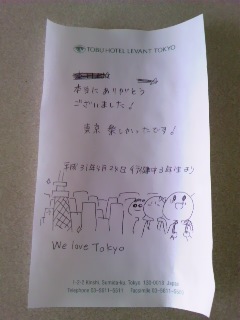 TOBU HOTEL LEVANT TOKYO
本当にありがとう
ございました!
東京 楽しかったです!
平成31年4月24日
We love Tokyo
1-2-2 Kinshi, Sumida-ku, Tokyo 130-0013 Japan
Telephone 03-5611-5511 Facsimile 03-5611-